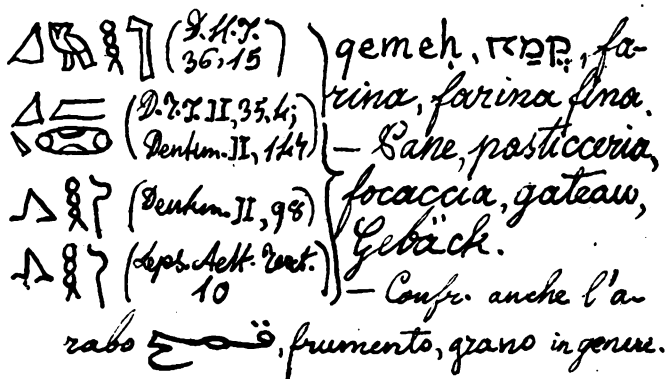 (D.H.I.
36,15)
(D.T.I II, 35,4;
Denkm. II, 147)
(Denkm. II, 98)
(Leps. Aelt. Text.
10)
qemeḥ, קֶמַח, fa-
rina, farina fina.
— Pane, pasticceria,
focaccia, gateau,
Gebäck.
— Confr. anche l'a-
rabo قمح, frumento, grano in genere.